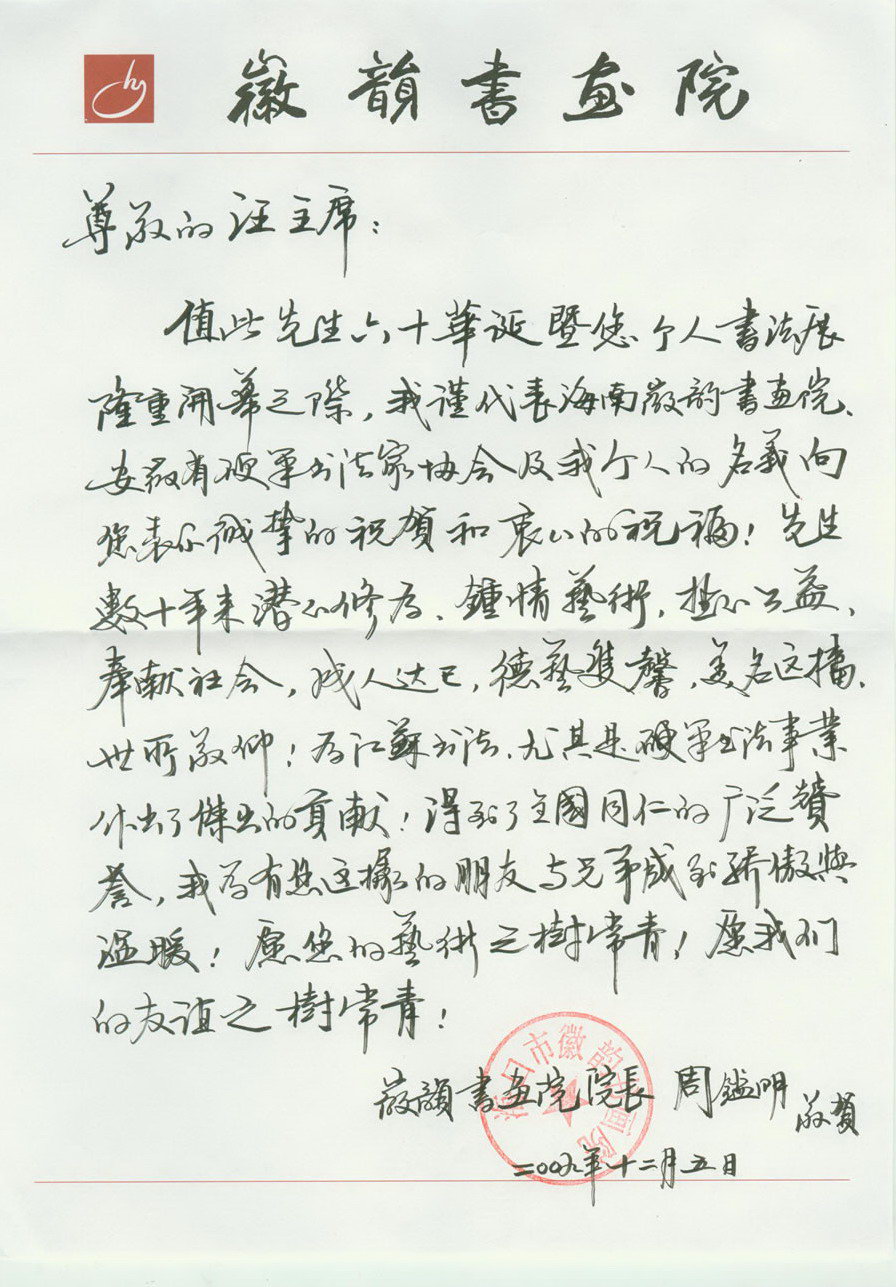 hy
徽韻書画院
尊敬的汪主席：
值此先生六十華诞暨您个人書法展
隆重開幕之際，我谨代表海南徽韵書画院、
安徽省硬笔书法家协会及我个人的名義向
您表示诚挚的祝賀和衷心的祝福！先生
數十年来潜心修为、鍾情藝術，热心公益、
奉献社会，成人达已，德藝雙馨，美名远播、
世所敬仰！为江蘇书法、尤其是硬笔书法事業
作出了傑出的貢献！得到了全國同仁的广泛贊
誉，我为有您这樣的朋友与兄弟感到骄傲與
温暖！愿您的藝術之樹常青！愿我们
的友谊之樹常青！
徽韻書画院院長 周鎰明 敬賀
二00九年十二月五日
海口市徽韵書画院